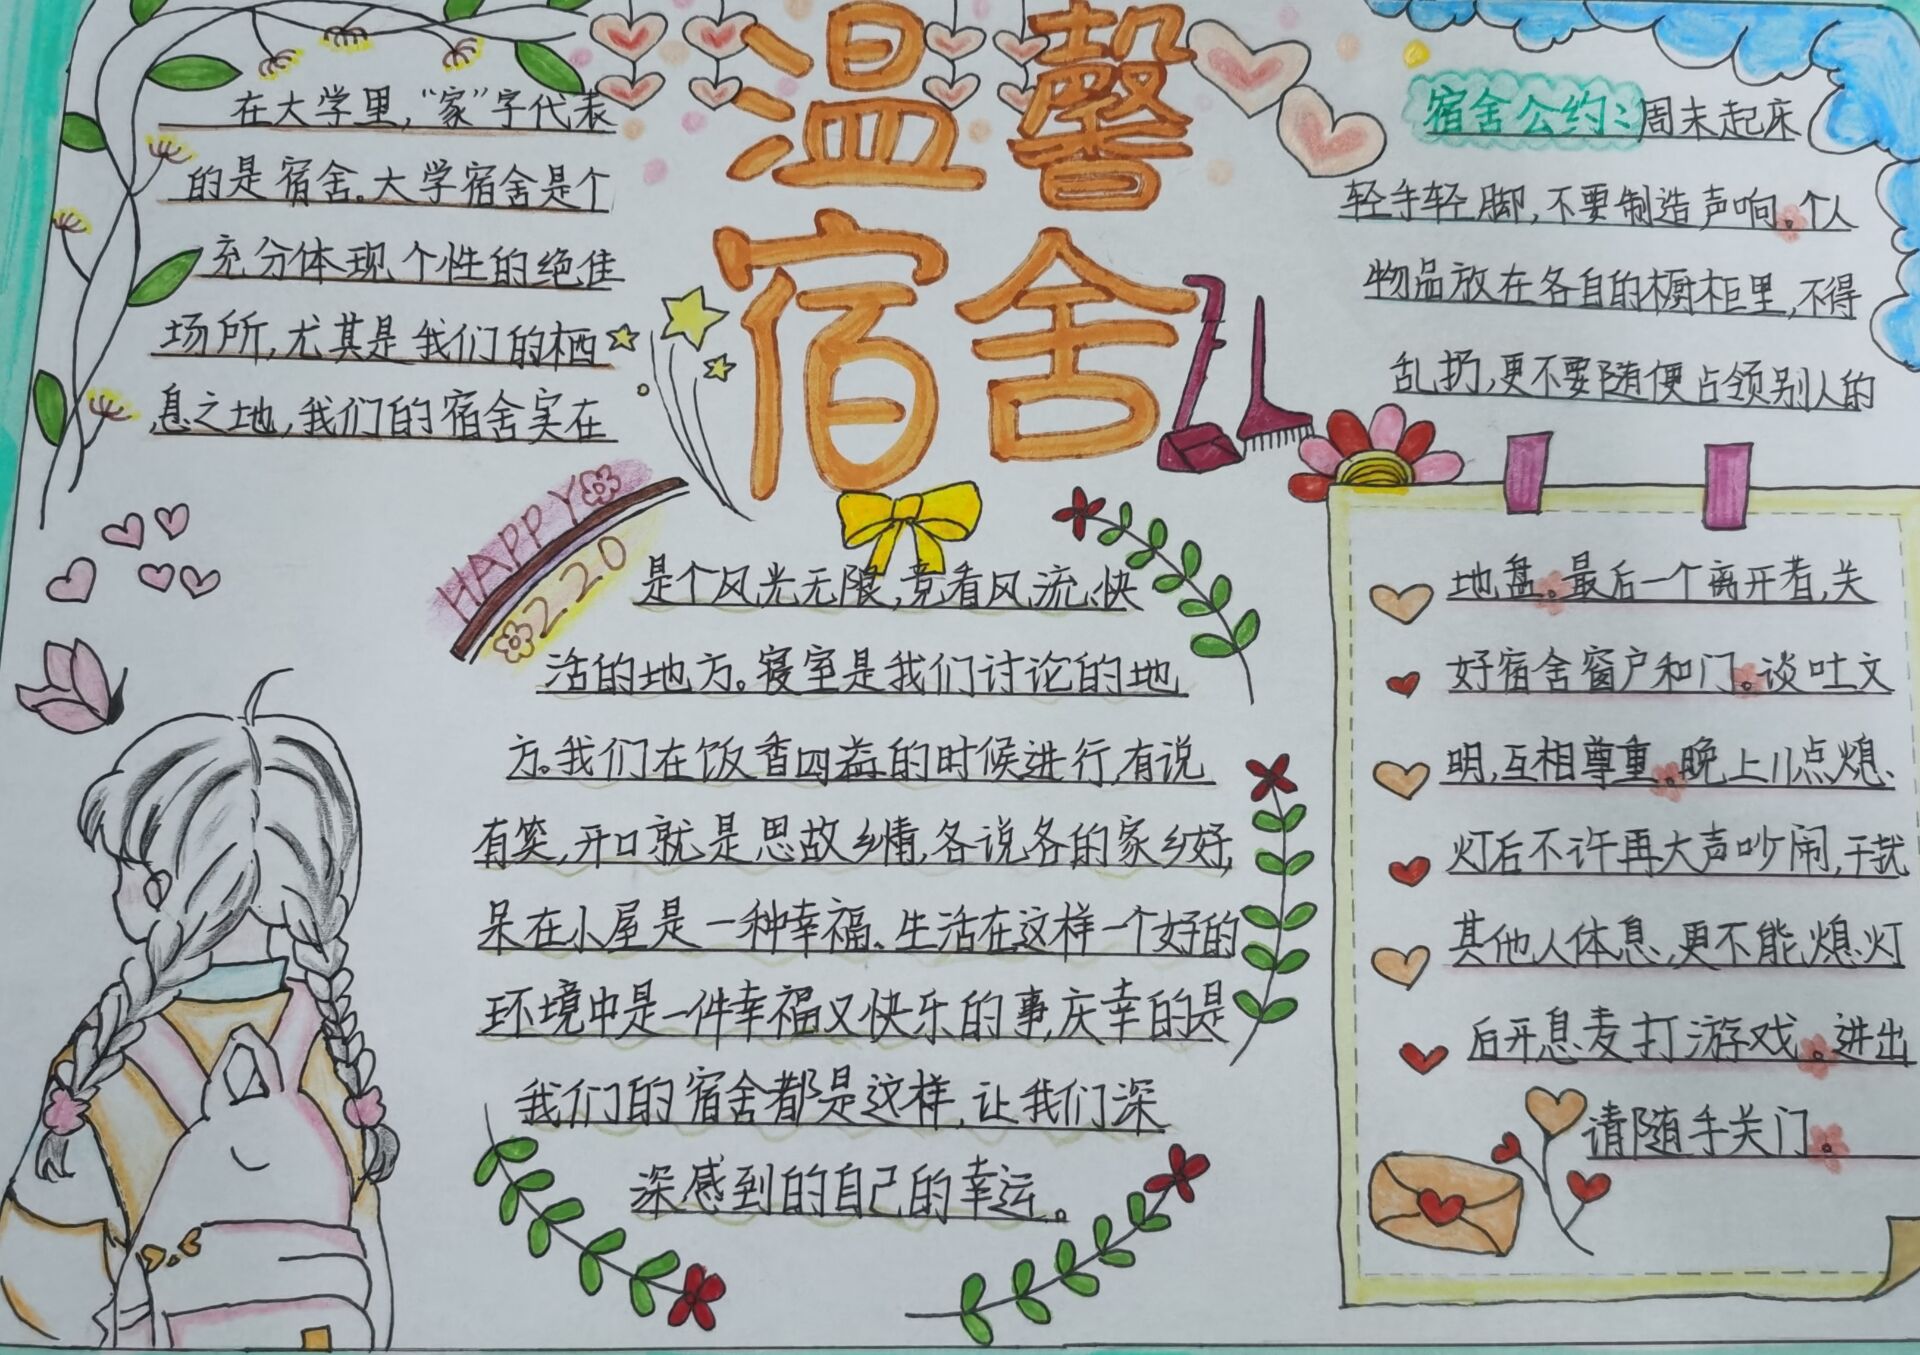 温馨
宿舍
在大学里，“家”字代表
的是宿舍。大学宿舍是个
充分体现个性的绝佳
场所，尤其是我们的栖
息之地，我们的宿舍实在
HAPPY
220
是个风光无限，竞看风流、快
活的地方。寝室是我们讨论的地
方。我们在饭香四益的时候进行，有说
有笑，开口就是思故乡情，各说各的家乡好，
呆在小屋是一种幸福、生活在这样一个好的
环境中是一件幸福又快乐的事，庆幸的是
我们的宿舍都是这样，让我们深
深感到的自己的幸运。
宿舍公约：周末起床
轻手轻脚，不要制造声响。个人
物品放在各自的橱柜里，不得
乱扔，更不要随便占领别人的
地盘。最后一个离开者，关
好宿舍窗户和门。谈吐文
明，互相尊重。晚上11点熄
灯后不许再大声吵闹，干扰
其他人体息，更不能熄灯
后开息麦打游戏。进出
请随手关门。